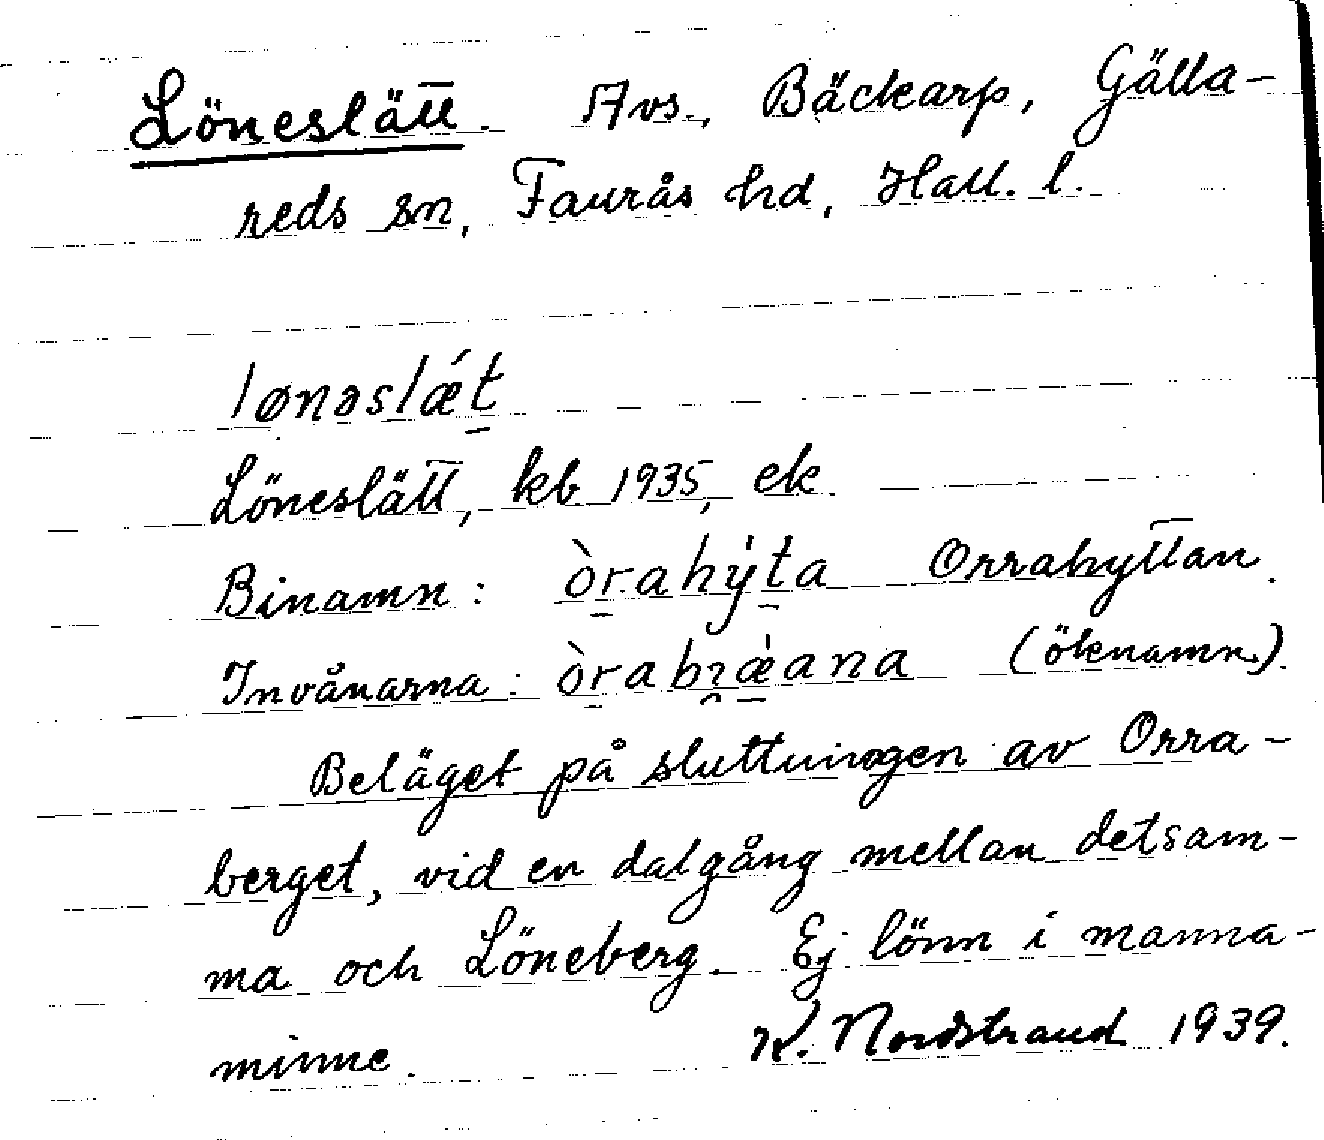 Löneslätt. Avs., Bäckarp, Gälla-
reds sn, Faurås hd, Hall. l.
lønəslǽt̠
Löneslätt, kb 1935, ek.
Binamn: òr̠ahýt̠a Orrahyttan.
Invånarna: òr̠abɿ̯ǽ̠ana (öknamn.).
Beläget på sluttningen av Orra-
berget, vid en dalgång mellan detsam-
ma och Löneberg. Ej lönn i manna-
minne. K. Nordstrand 1939.